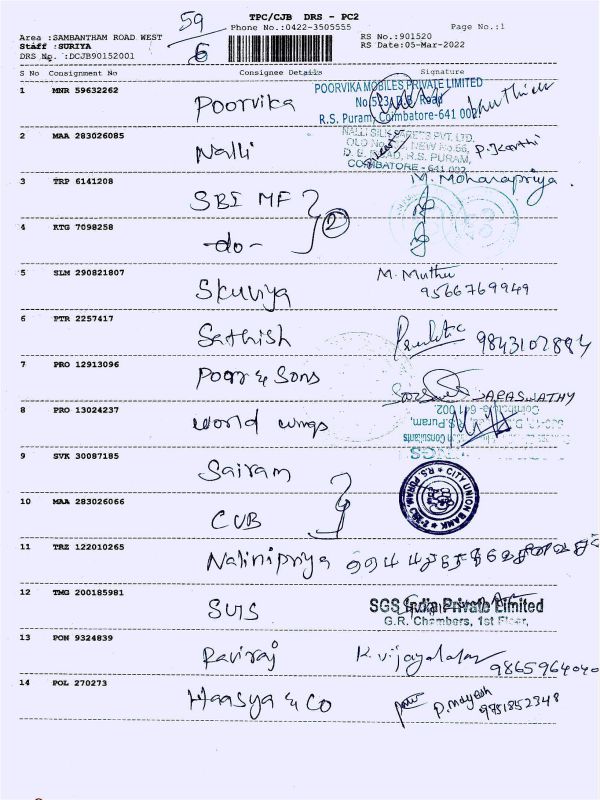 59
6
TPC/CJB DRS - PC2
Phone No.:0422-3505555
Page No.:1
Area :SAMBANTHAM ROAD WEST
Staff :SURIYA
DRS No. :DCJB90152001
RS No.:901520
RS Date:05-Mar-2022
S No Consignment No Consignee Details Signature
1 MNR 59632262 Poorvika
POORVIKA MOBILES PRIVATE LIMITED
R.S. Puram, Coimbatore-641 002
2 MAA 283026085 Nalli P. Karthi
NALLI SILK SAREES PVT. LTD.
D. B. ROAD, R.S. PURAM,
COIMBATORE - 641 002
3 TRP 6141208 SBI MF M. Mohanapriya
4 KTG 7098258 -do- 2
5 SLM 290821807 Skuviya M. Muthu
9566769949
6 PTR 2257417 Sathish 9843107884
7 PRO 12913096 Poor & Sons SARASWATHY
8 PRO 13024237 World wings
9 SVK 30087185 Sairam
CITY UNION BANK
R.S. PURAM
10 MAA 283026066 CUB
11 TRZ 122010265 Nalinipriya
12 TMG 200185981 SUS
SGS India Private Limited
G.R. Chambers, 1st Floor,
13 PON 9324839 Raviraj K. Vijayalakshmi 9865964040
14 POL 270273 Haasya & Co P. Mayesh 9751852348